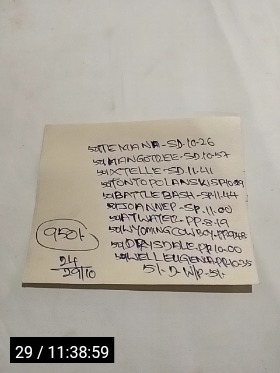 TEXIANA-SD.10-26
MANGOTREE-SD.10-57
IXTELLE-SD.11-41
TONTOPOLANSKI SP.10-09
BATTLE BASH-SP.11.44
JOANNEP-SP.11.00
ATWATER-PP-8-19
WYOMINGCOWBOY-PP-9-48
DRYSDALE.PP.10-00
WELLEUGENIA.PP.10-35
5/- D-W/P-5/-
950/-
24
29/10
29 / 11:38:59